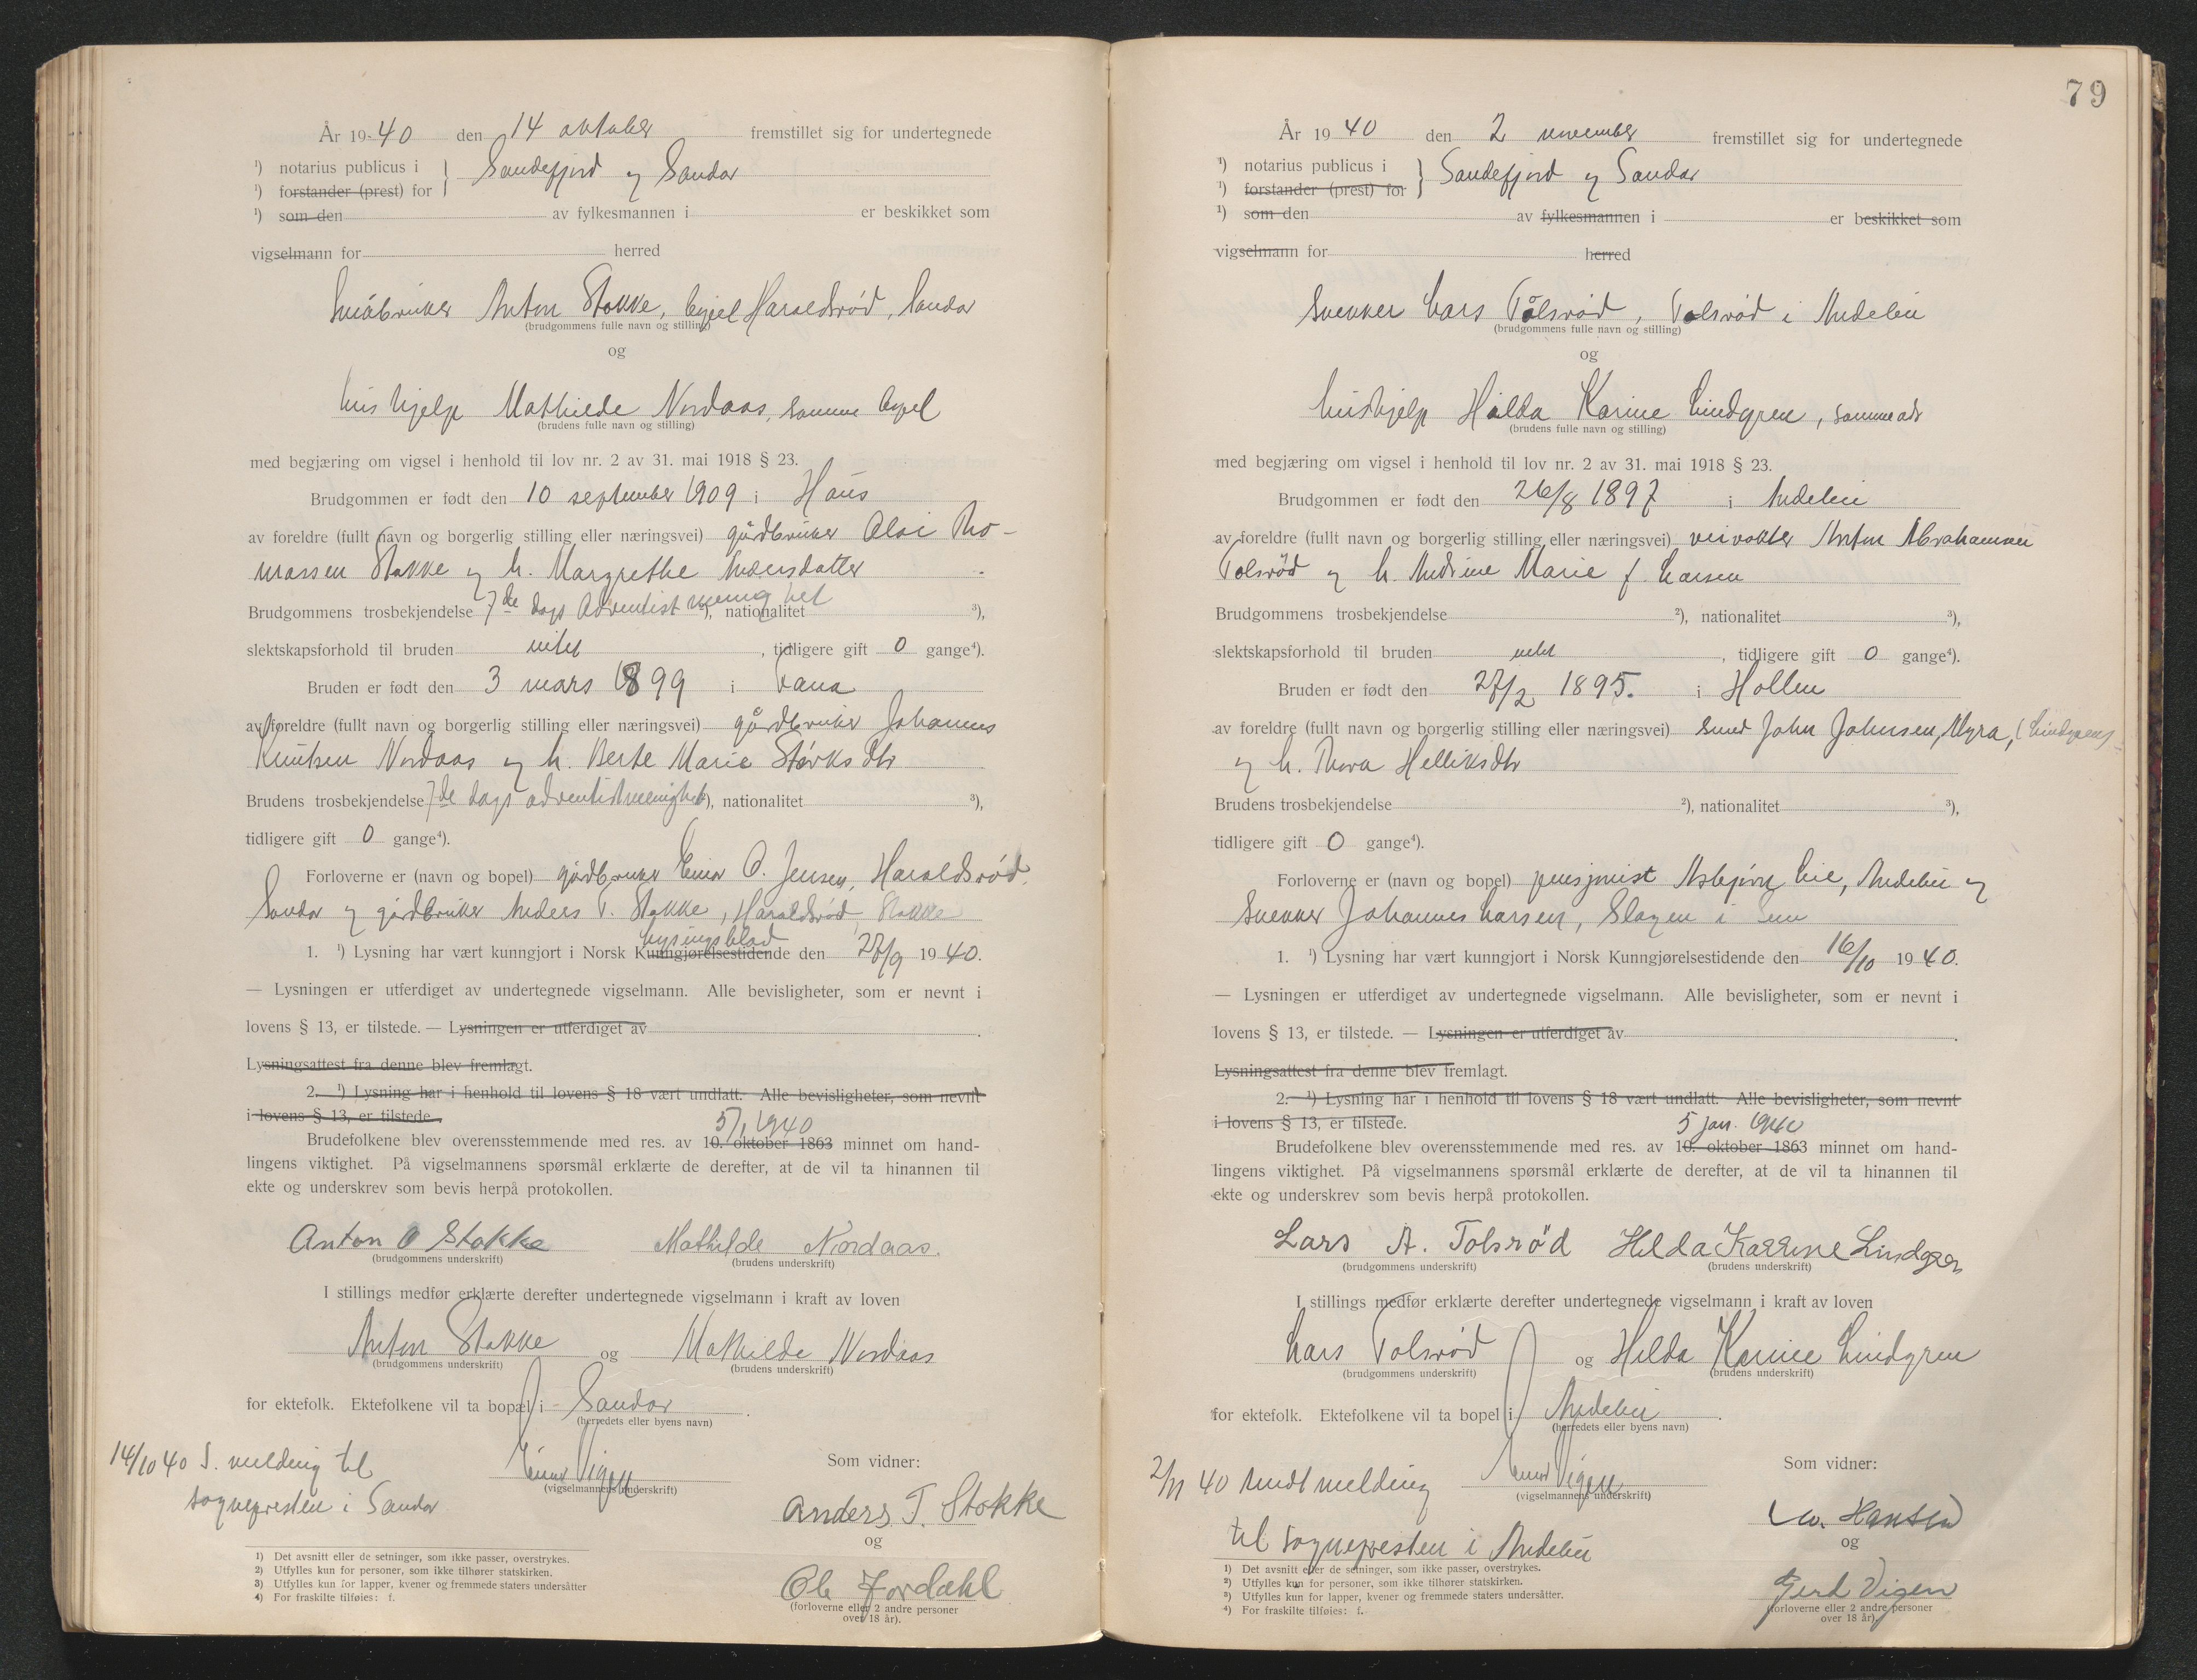 År 1940 den 14 oktober fremstillet sig for undertegnede
¹) notarius publicus i } Sandefjord og Sandar
¹) forstander (prest) for
¹) som den av fylkesmannen i er beskikket som
vigselmann for herred
Småbruker Anton Stokke, bopel Haraldsrød, Sandar
(brudgommens fulle navn og stilling)
og
hushjelp Mathilde Nordaas, samme bopel
(brudens fulle navn og stilling)
med begjæring om vigsel i henhold til lov nr. 2 av 31. mai 1918 § 23.
Brudgommen er født den 10 september 1909 i Haus
av foreldre (fullt navn og borgerlig stilling eller næringsvei) gårdbruker Olai Tho-
massen Stokke og h. Margrethe Andersdatter
Brudgommens trosbekjendelse 7de dags Adventist menighet ²), nationalitet ³),
slektskapsforhold til bruden intet, tidligere gift 0 gange⁴).
Bruden er født den 3 mars 1899 i Fana
av foreldre (fullt navn og borgerlig stilling eller næringsvei) gårdbruker Johannes
Knutsen Nordaas og h. Berte Marie Størksdtr
Brudens trosbekjendelse 7de dags adventistmenighet ²), nationalitet ³),
tidligere gift 0 gange⁴).
Forloverne er (navn og bopel) gårdbruker Einar O. Jensen, Haraldsrød,
Sandar og gårdbruker Anders T. Stokke, Haraldsrød, Stokke
lysingsblad
1. ¹) Lysning har vært kunngjort i Norsk Kunngjørelsestidende den 27/9 1940.
— Lysningen er utferdiget av undertegnede vigselmann. Alle bevisligheter, som er nevnt i
lovens § 13, er tilstede. — Lysningen er utferdiget av
Lysningsattest fra denne blev fremlagt.
2. ¹) Lysning har i henhold til lovens § 18 vært undlatt. Alle bevisligheter, som nevnt
i lovens § 13, er tilstede.
5/1 1940
Brudefolkene blev overensstemmende med res. av 10. oktober 1863 minnet om hand-
lingens viktighet. På vigselmannens spørsmål erklærte de derefter, at de vil ta hinannen til
ekte og underskrev som bevis herpå protokollen.
Anton O Stokke Mathilde Nordaas.
(brudgommens underskrift) (brudens underskrift)
I stillings medfør erklærte derefter undertegnede vigselmann i kraft av loven
Anton Stokke og Mathilde Nordaas
(brudgommens underskrift) (brudens underskrift)
for ektefolk. Ektefolkene vil ta bopæl i Sandar.
(herredets eller byens navn)
14/10 40 S. melding til
sognepresten i Sandar
Einar Vigen
(vigselmannens underskrift)
Som vidner:
Anders T. Stokke
og
Ole Jordahl
(forloverne eller 2 andre personer
over 18 år).
1) Det avsnitt eller de setninger, som ikke passer, overstrykes.
2) Utfylles kun for personer, som ikke tilhører statskirken.
3) Utfylles kun for lapper, kvener og fremmede staters undersåtter
4) For fraskilte tilføies: f.
79
År 1940 den 2 november fremstillet sig for undertegnede
¹) notarius publicus i } Sandefjord og Sandar
¹) forstander (prest) for
¹) som den av fylkesmannen i er beskikket som
vigselmann for herred
Snekker Lars Tolsrød, Tolsrød i Andebu
(brudgommens fulle navn og stilling)
og
hushjelp Hilda Karine Lindgren, samme adr
(brudens fulle navn og stilling)
med begjæring om vigsel i henhold til lov nr. 2 av 31. mai 1918 § 23.
Brudgommen er født den 26/8 1897 i Andebu
av foreldre (fullt navn og borgerlig stilling eller næringsvei) veivokter Anton Abrahamsen
Tolsrød og h. Andrine Marie f. Larsen
Brudgommens trosbekjendelse ²), nationalitet ³),
slektskapsforhold til bruden intet, tidligere gift 0 gange⁴).
Bruden er født den 27/2 1895. i Hollen
av foreldre (fullt navn og borgerlig stilling eller næringsvei) smed John Johnsen, Myra, (Lindgren)
og h. Thora Helliksdtr
Brudens trosbekjendelse ²), nationalitet ³),
tidligere gift 0 gange⁴).
Forloverne er (navn og bopel) pensjonist Asbjørn Lie, Andebu og
Snekker Johannes Larsen, Slagen i Sem
1. ¹) Lysning har vært kunngjort i Norsk Kunngjørelsestidende den 16/10 1940.
— Lysningen er utferdiget av undertegnede vigselmann. Alle bevisligheter, som er nevnt i
lovens § 13, er tilstede. — Lysningen er utferdiget av
Lysningsattest fra denne blev fremlagt.
2. ¹) Lysning har i henhold til lovens § 18 vært undlatt. Alle bevisligheter, som nevnt
i lovens § 13, er tilstede.
5 jan. 1940
Brudefolkene blev overensstemmende med res. av 10. oktober 1863 minnet om hand-
lingens viktighet. På vigselmannens spørsmål erklærte de derefter, at de vil ta hinannen til
ekte og underskrev som bevis herpå protokollen.
Lars A. Tolsrød Hilda Karrine Lindgren
(brudgommens underskrift) (brudens underskrift)
I stillings medfør erklærte derefter undertegnede vigselmann i kraft av loven
Lars Tolsrød og Hilda Karine Lindgren
(brudgommens underskrift) (brudens underskrift)
for ektefolk. Ektefolkene vil ta bopel i Andebu.
(herredets eller byens navn)
2/11 40 sendt melding
til sognepresten i Andebu
Einar Vigen
(vigselmannens underskrift)
Som vidner:
Hansen
og
Gerd Vigen
(forloverne eller 2 andre personer
over 18 år).
1) Det avsnitt eller de setninger, som ikke passer, overstrykes.
²) Utfylles kun for personer, som ikke tilhører statskirken.
³) Utfylles kun for lapper, kvener og fremmede staters undersåtter.
⁴) For fraskilte tilføies: f.